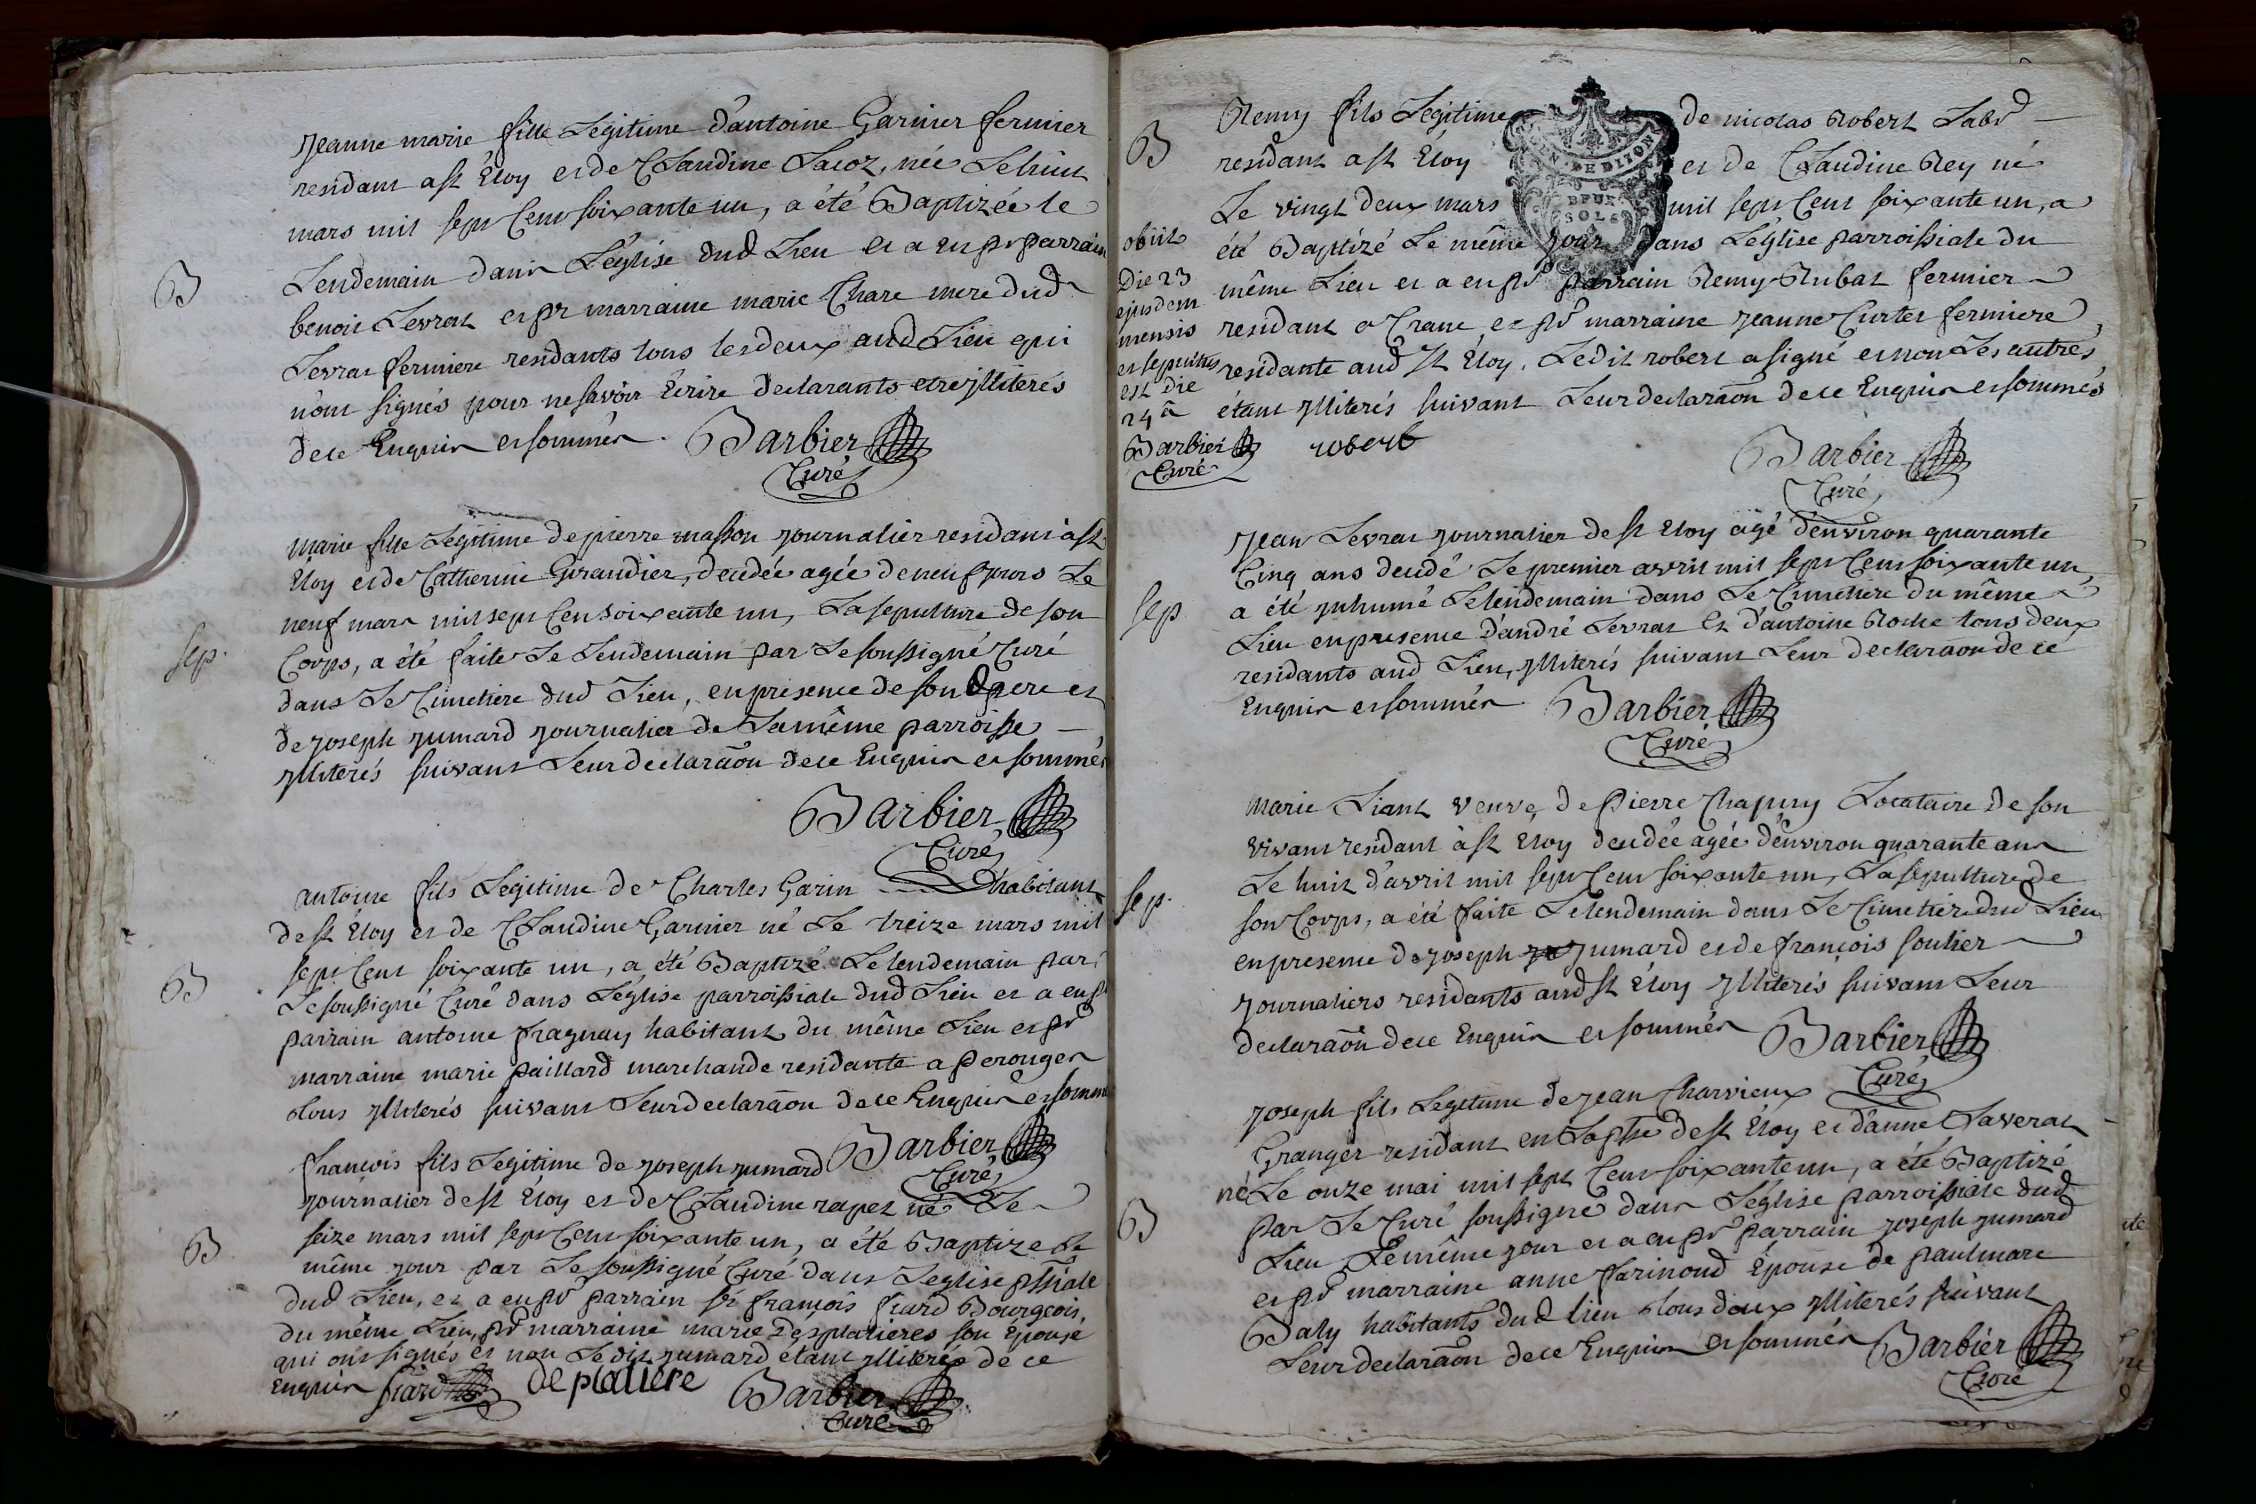 Jeanne marie fille Légitime d'antoine Garnier fermier
residant a st Eloy et de Claudine Lacoz, née Le huit
mars mil sept Cent soixante un, a été Baptizée le
B
Lendemain dans L'église dud Lieu et a eu pr parrain
benoit Levrat et pr marraine marie Chare mere dud
Levrat fermiere residants tous les deux aud Lieu qui
n'ont signés pour ne savoir Ecrire declarants etre illiterés
de ce Enquis et sommés. Barbier
Curé
marie fille Légitime de pierre masson journalier residant à st
Eloy et de Catherine Girandier, decedée agée de neuf jours Le
neuf mars mil sept Cent soixante un, La sepulture de son
sep.
Corps, a été faite Le Lendemain par Le soussigné Curé
dans Le Cimetiere dud Lieu, en presence de son pere et
de joseph jumard journalier de La même parroisse
illiterés suivant Leur declaraõn de ce Enquis et sommés
Barbier
Curé
antoine fils Legitime de Charles Garin habitant
de st Eloy et de Claudine Garnier né Le treize mars mil
sept Cent soixante un, a été Baptizé Le lendemain par
B
Le soussigné Curé dans L'église parroissiale dud Lieu et a eu pr
parrain antoine fragnay habitant du même Lieu et pr
marraine marie paillard marchande residante a perouges
tous illiterés suivant Leur declaraõn de ce Enquis et sommés
Barbier
Curé
françois fils Legitime de joseph jumard
journalier de st Eloy et de Claudine rapet né Le
seize mars mil sept Cent soixante un, a été Baptizé Le
B
même jour par Le soussigné Curé dans L'eglise pssiale
dud Lieu, et a eu pr parrain sr françois fiard Bourgeois
du même Lieu, pr marraine marie Desplatieres son Epouse
qui ont signés et non Le dit jumard étant illiterés de ce
Enquis fiard deplatiere Barbier
Curé
Remy fils Légitime de nicolas Robert Labr
B
residant a st Eloy et de Claudine Rey né
GEN. DE DIJON
DEUX
SOLS
Le vingt deux mars mil sept Cent soixante un, a
été Baptizé Le même jour dans L'église parroissiale du
même Lieu et a eu pr parrain Remy Rubat fermier
residant a Crane et pr marraine jeanne Curtet fermiere
residante aud st Eloy, Ledit robert a signé et non Les autres
étant illiterés suivant Leur declaraõn de ce Enquis et sommés
obiit
die 23
ejusdem
mensis
et sepultus
est die
24 â
Barbier
Curé
robert
Barbier
Curé
Jean Levrat journalier de st Eloy agé d'environ quarante
Cinq ans decedé Le premier avril mil sept Cent soixante un,
sep
a été inhumé Le lendemain dans Le Cimetiere du même
Lieu en presence d'andré Levrat et d'antoine Roche tous deux
residants aud Lieu, illiterés suivant Leur declaraõn de ce
Enquis et sommés Barbier
Curé
marie Liant veuve de Pierre Chapuy Locataire de son
vivant residant à st Eloy decedée agée d'environ quarante ans
Le huit d'avril mil sept Cent soixante un, La sepulture de
sep.
son Corps, a été faite Le lendemain dans Le Cimetiere dud Lieu
en presence de joseph jumard et de françois soulier
journaliers residants aud st Eloy illiterés suivant Leur
declaraõn de ce Enquis et sommés Barbier
Curé
joseph fils Legitime de jean Charvieux
Granger residant en La psse de st Eloy et d'anne Laverat
né Le onze mai mil sept Cent soixante un, a été Baptizé
B
par Le Curé soussigné dans L'église parroissiale dud
Lieu Le même jour et a eu pr parrain joseph jumard
et pr marraine anne farinoud Epouse de paul marc
Baty habitants dud lieu tous deux illiterés suivant
Leur declaraõn de ce Enquis et sommés Barbier
Curé